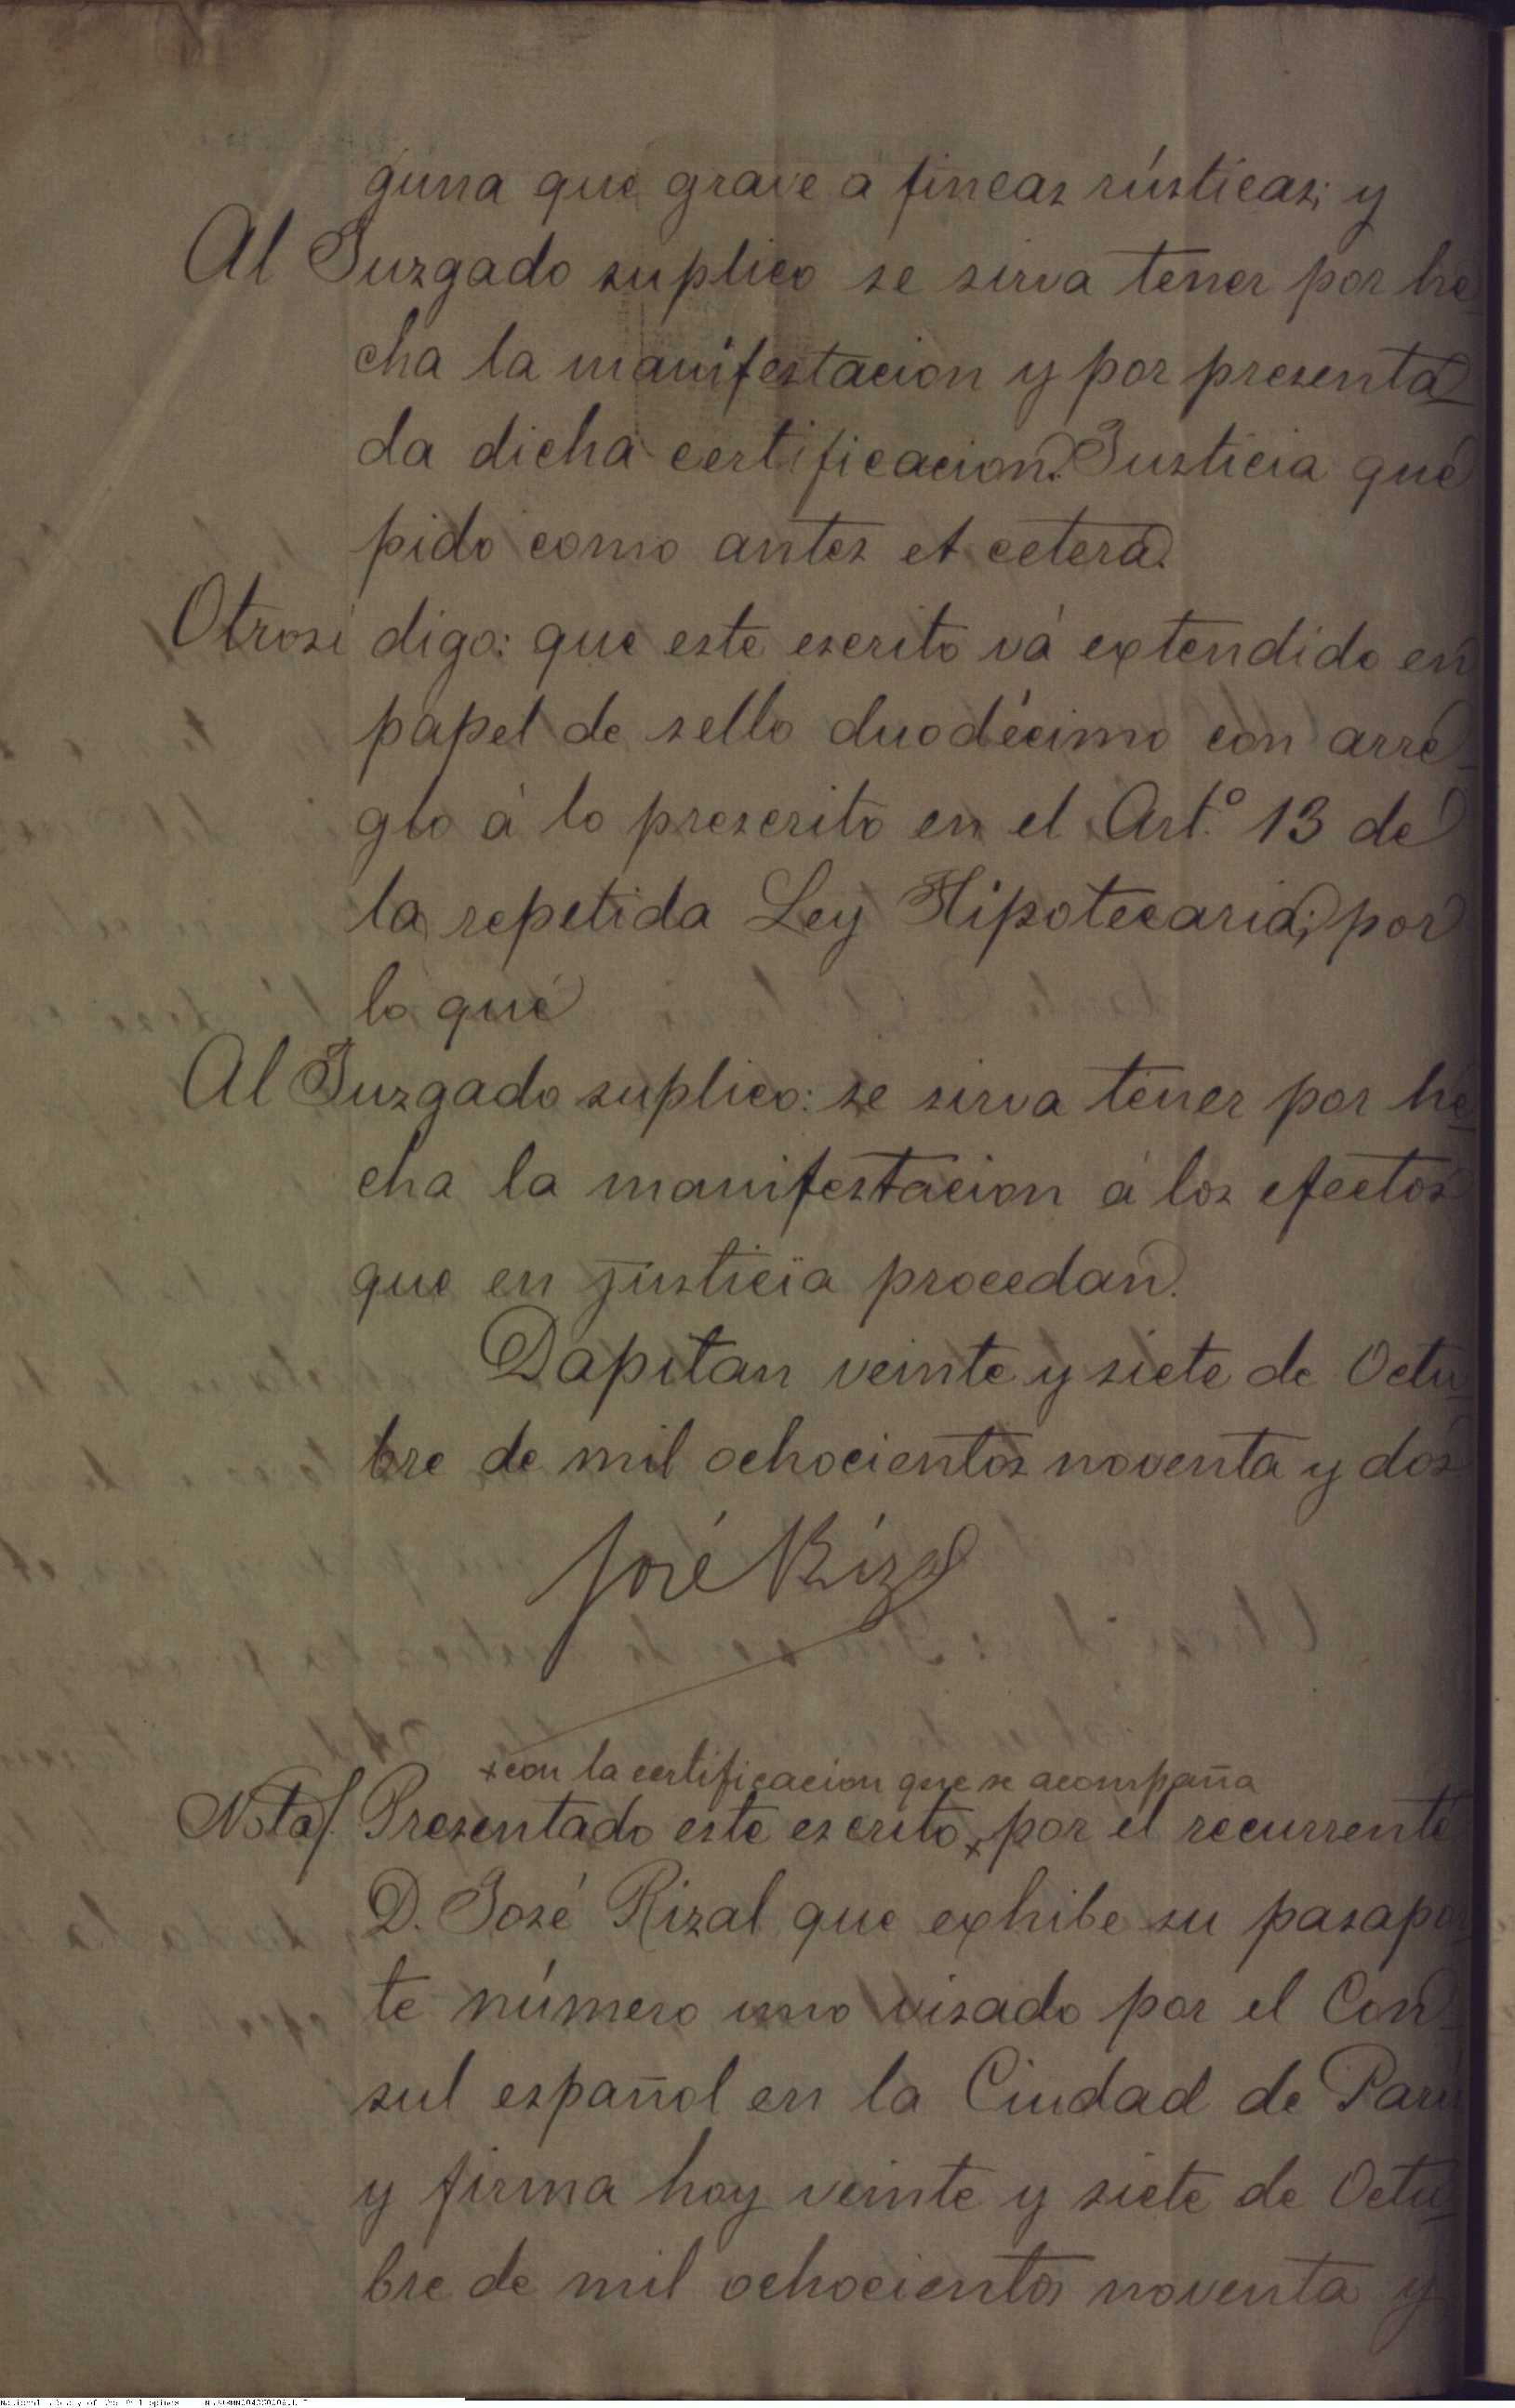 guna que grave a fincas rústicas; y
Al Juzgado suplico se sirva tener por he-
cha la manifestacion y por presenta-
da dicha certificacion. Justicia que
pido como antes et cetera.
Otrosi digo: que este escrito vá extendido en
papel de sello duodécimo con arre-
glo á lo prescrito en el Art.º 13 de
la repetida Ley Hipotecaria; por
lo que
Al Juzgado suplico: se sirva tener por he-
cha la manifestacion á los efectos
que en justicia procedan.
Dapitan veinte y siete de Octu-
bre de mil ochocientos noventa y dos
José Rizal
×con la certificacion que se acompaña
Nota/. Presentado este escrito × por el recurrente
D. José Rizal que exhibe su pasapor-
te número uno visado por el Con-
sul español en la Ciudad de Paris
y firma hoy veinte y siete de Octu-
bre de mil ochocientos noventa y
National Library of the Philippines